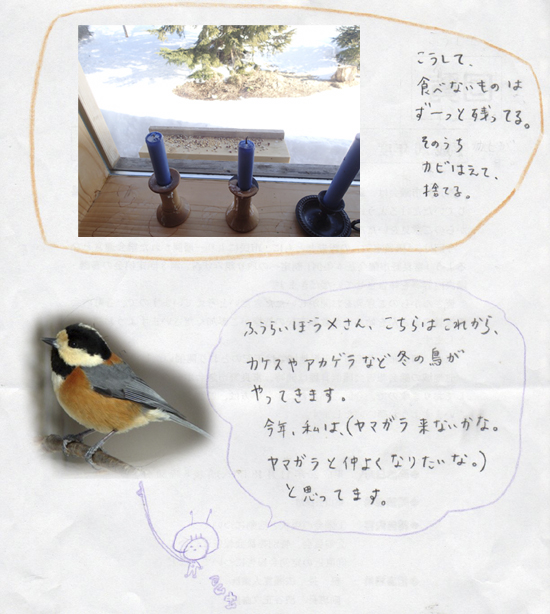 こうして、
食べないものは
ずーっと残ってる。
そのうち
カビはえて、
捨てる。
ふうらいぼう×さん、こちらはこれから、
カケスやアカゲラなど冬の鳥が
やってきます。
今年、私は、(ヤマガラ来ないかな。
ヤマガラと仲よくなりたいな。)
と思ってます。